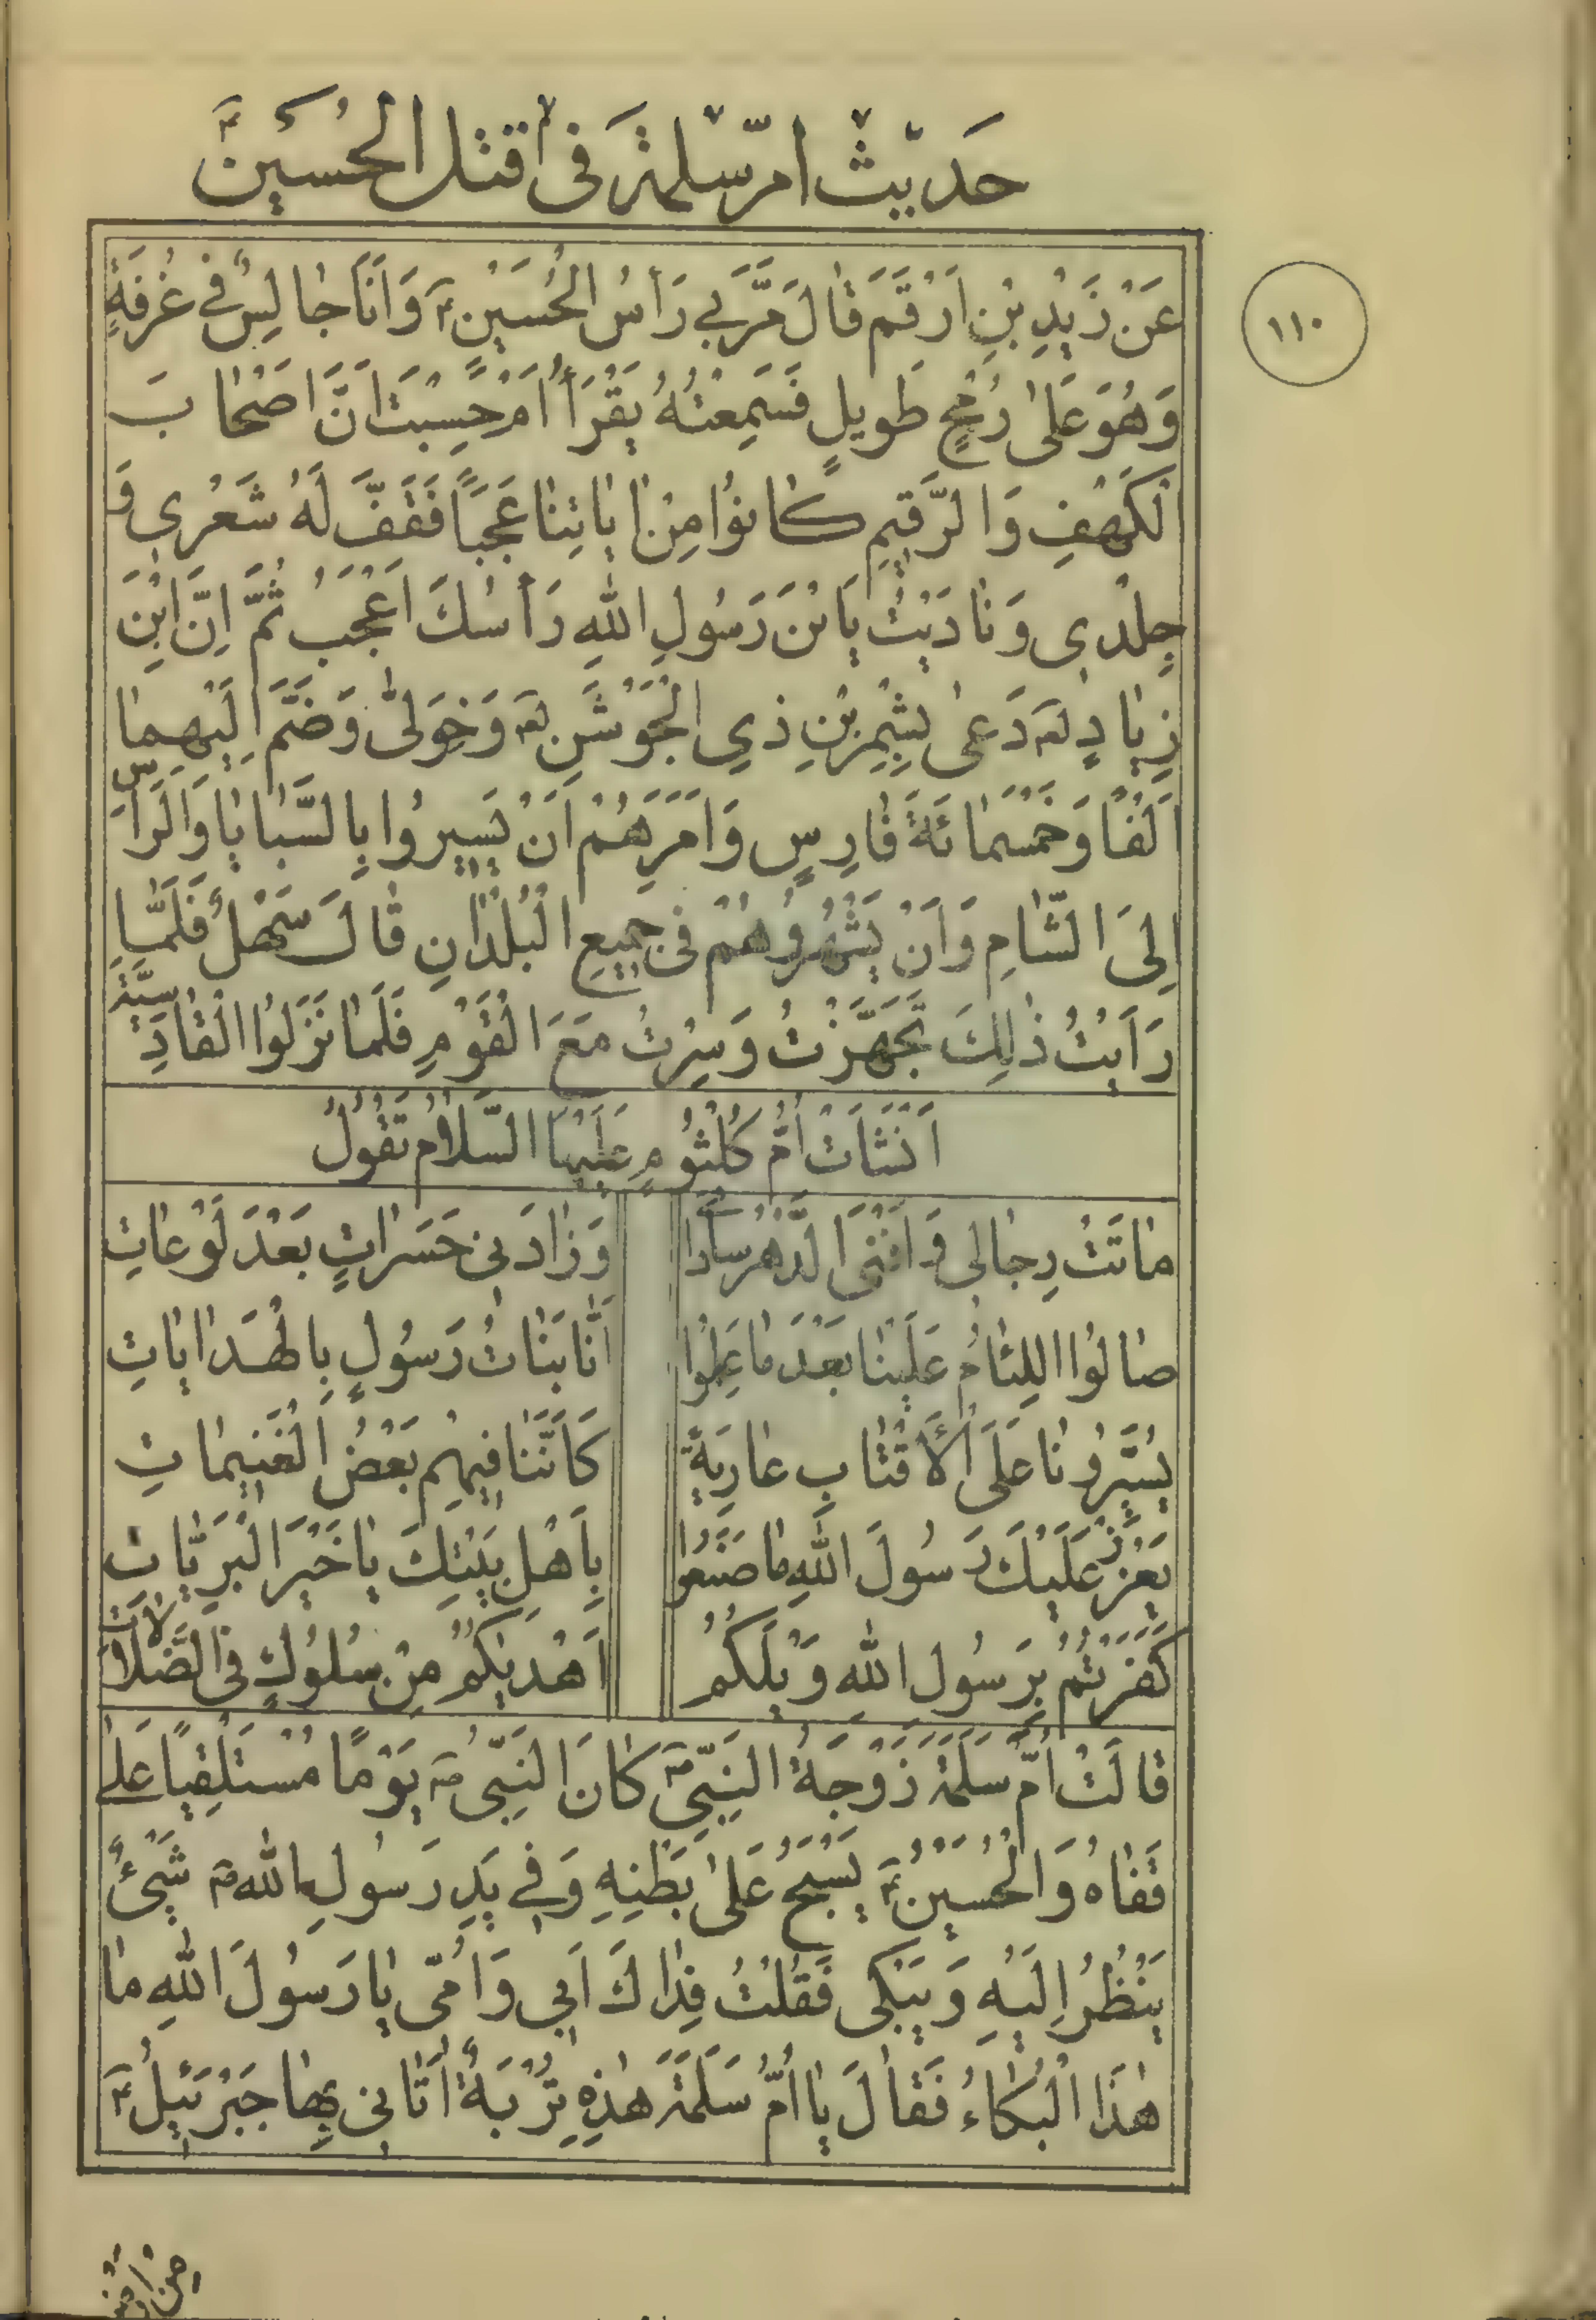 حَديثُ امّ سلمة فى قتل الحُسَين ؑ
١١٠
عَنْ زَيْدِ بْنِ اَرْقَمَ قالَ مَرَّ بي رَأسُ الْحُسَيْنِ ؑ وَ اَنَا جالِسٌ في غُرفَةٍ
وَهُوَ عَلىٰ رُمْحٍ طَويلٍ فَسَمِعْتُهُ يَقْرَأُ اَمْ حَسِبْتَ اَنَّ اَصْحابَ
الْكَهْفِ وَالرَّقيمِ كانُوا مِنْ اياتِنا عَجَبًا فَقَفَّ لَهُ شَعْرى وَ
جِلْدى وَنادَيْتُ يَابْنَ رَسُولِ اللهِ رَأسُكَ اَعْجَبُ ثُمَّ اِنَّ ابْنَ
زِيادٍ لعـ دَعىٰ بِشِمْرِ بْنِ ذي الْجَوْشَنِ لعـ وَ خَوَلىّٰ وَ ضَمَّ اِلَيْهِما
اَلْفًا وَ خَمْسَمائَةَ فارِسٍ وَ اَمَرَهُمْ اَنْ يَسيرُوا بِالسَّبايا وَ الرَأسِ
اِلىَ الشّامِ وَ اَنْ يَشْهَرُوهُمْ فى جَميعِ الْبُلْدانِ قالَ سَهْلٌ فَلَمّا
رَاَيْتُ ذٰلِكَ تَجَهَّزْتُ وَ سِرْتُ مَعَ الْقَوْمِ فَلَمّا نَزَلُوا الْقادِسِيَّةِ
اَنْشَاَتْ اُمُّ كُلْثُومٍ عَلَيْهَا السَّلامُ تَقُولُ
ماتَتْ رِجالى وَ اَفْنَى الدَّهْرُ ساداتى وَ زادَنى حَسَراتٍ بَعْدَ لَوْعاتِ
صالُوا اللِئامُ عَلَيْنا بَعْدَ ما عَلِمُوا اَنّا بَناتُ رَسُولٍ بِالْهُدىٰ اياتِ
يُسَيِّرُونا عَلَى الْأَقْتابِ عارِيَةً كَاَنَّنا فيهِم بَعْضُ الْغَنيماتِ
يَعْزِزْ عَلَيْكَ رَسُولَ اللهِ ما صَنَعُوا بِاَهْلِ بَيْتِكَ يا خَيْرَ الْبَرِيّاتِ
كَفَرْتُمُ بِرَسُولِ اللهِ وَيْلَكُمُ اَهْديكُمُ مِنْ سُلُوكٍ فى الضَّلالاتِ
قالَتْ اُمّ سَلَمَة زَوْجَةُ النَبِّيِ ص كانَ النَبِّى ص يَوْمًا مُسْتَلْقِيًا عَلىٰ
قَفاهُ وَ الْحُسَيْنُ ؑ يَسْبَحُ عَلىٰ بَطْنِهِ وَ في يَدِ رَسُولِ الله ص شَيْئٌ
يَنْظُرُ اِلَيْهِ وَ يَبْكى فَقُلْتُ فِداكَ اَبي وَ اُمّى يا رَسُولَ اللهِ ما
هٰذَا الْبُكاءُ فَقالَ يا اُمُّ سَلَمَةَ هٰذِهِ تُرْبَةٌ اَتانى بِها جَبْرَئيلُ ؑ